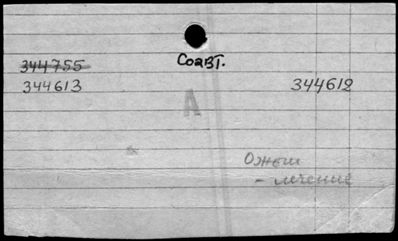 Соавт.
344755
344613 344612
А
Ожоги
- лечение